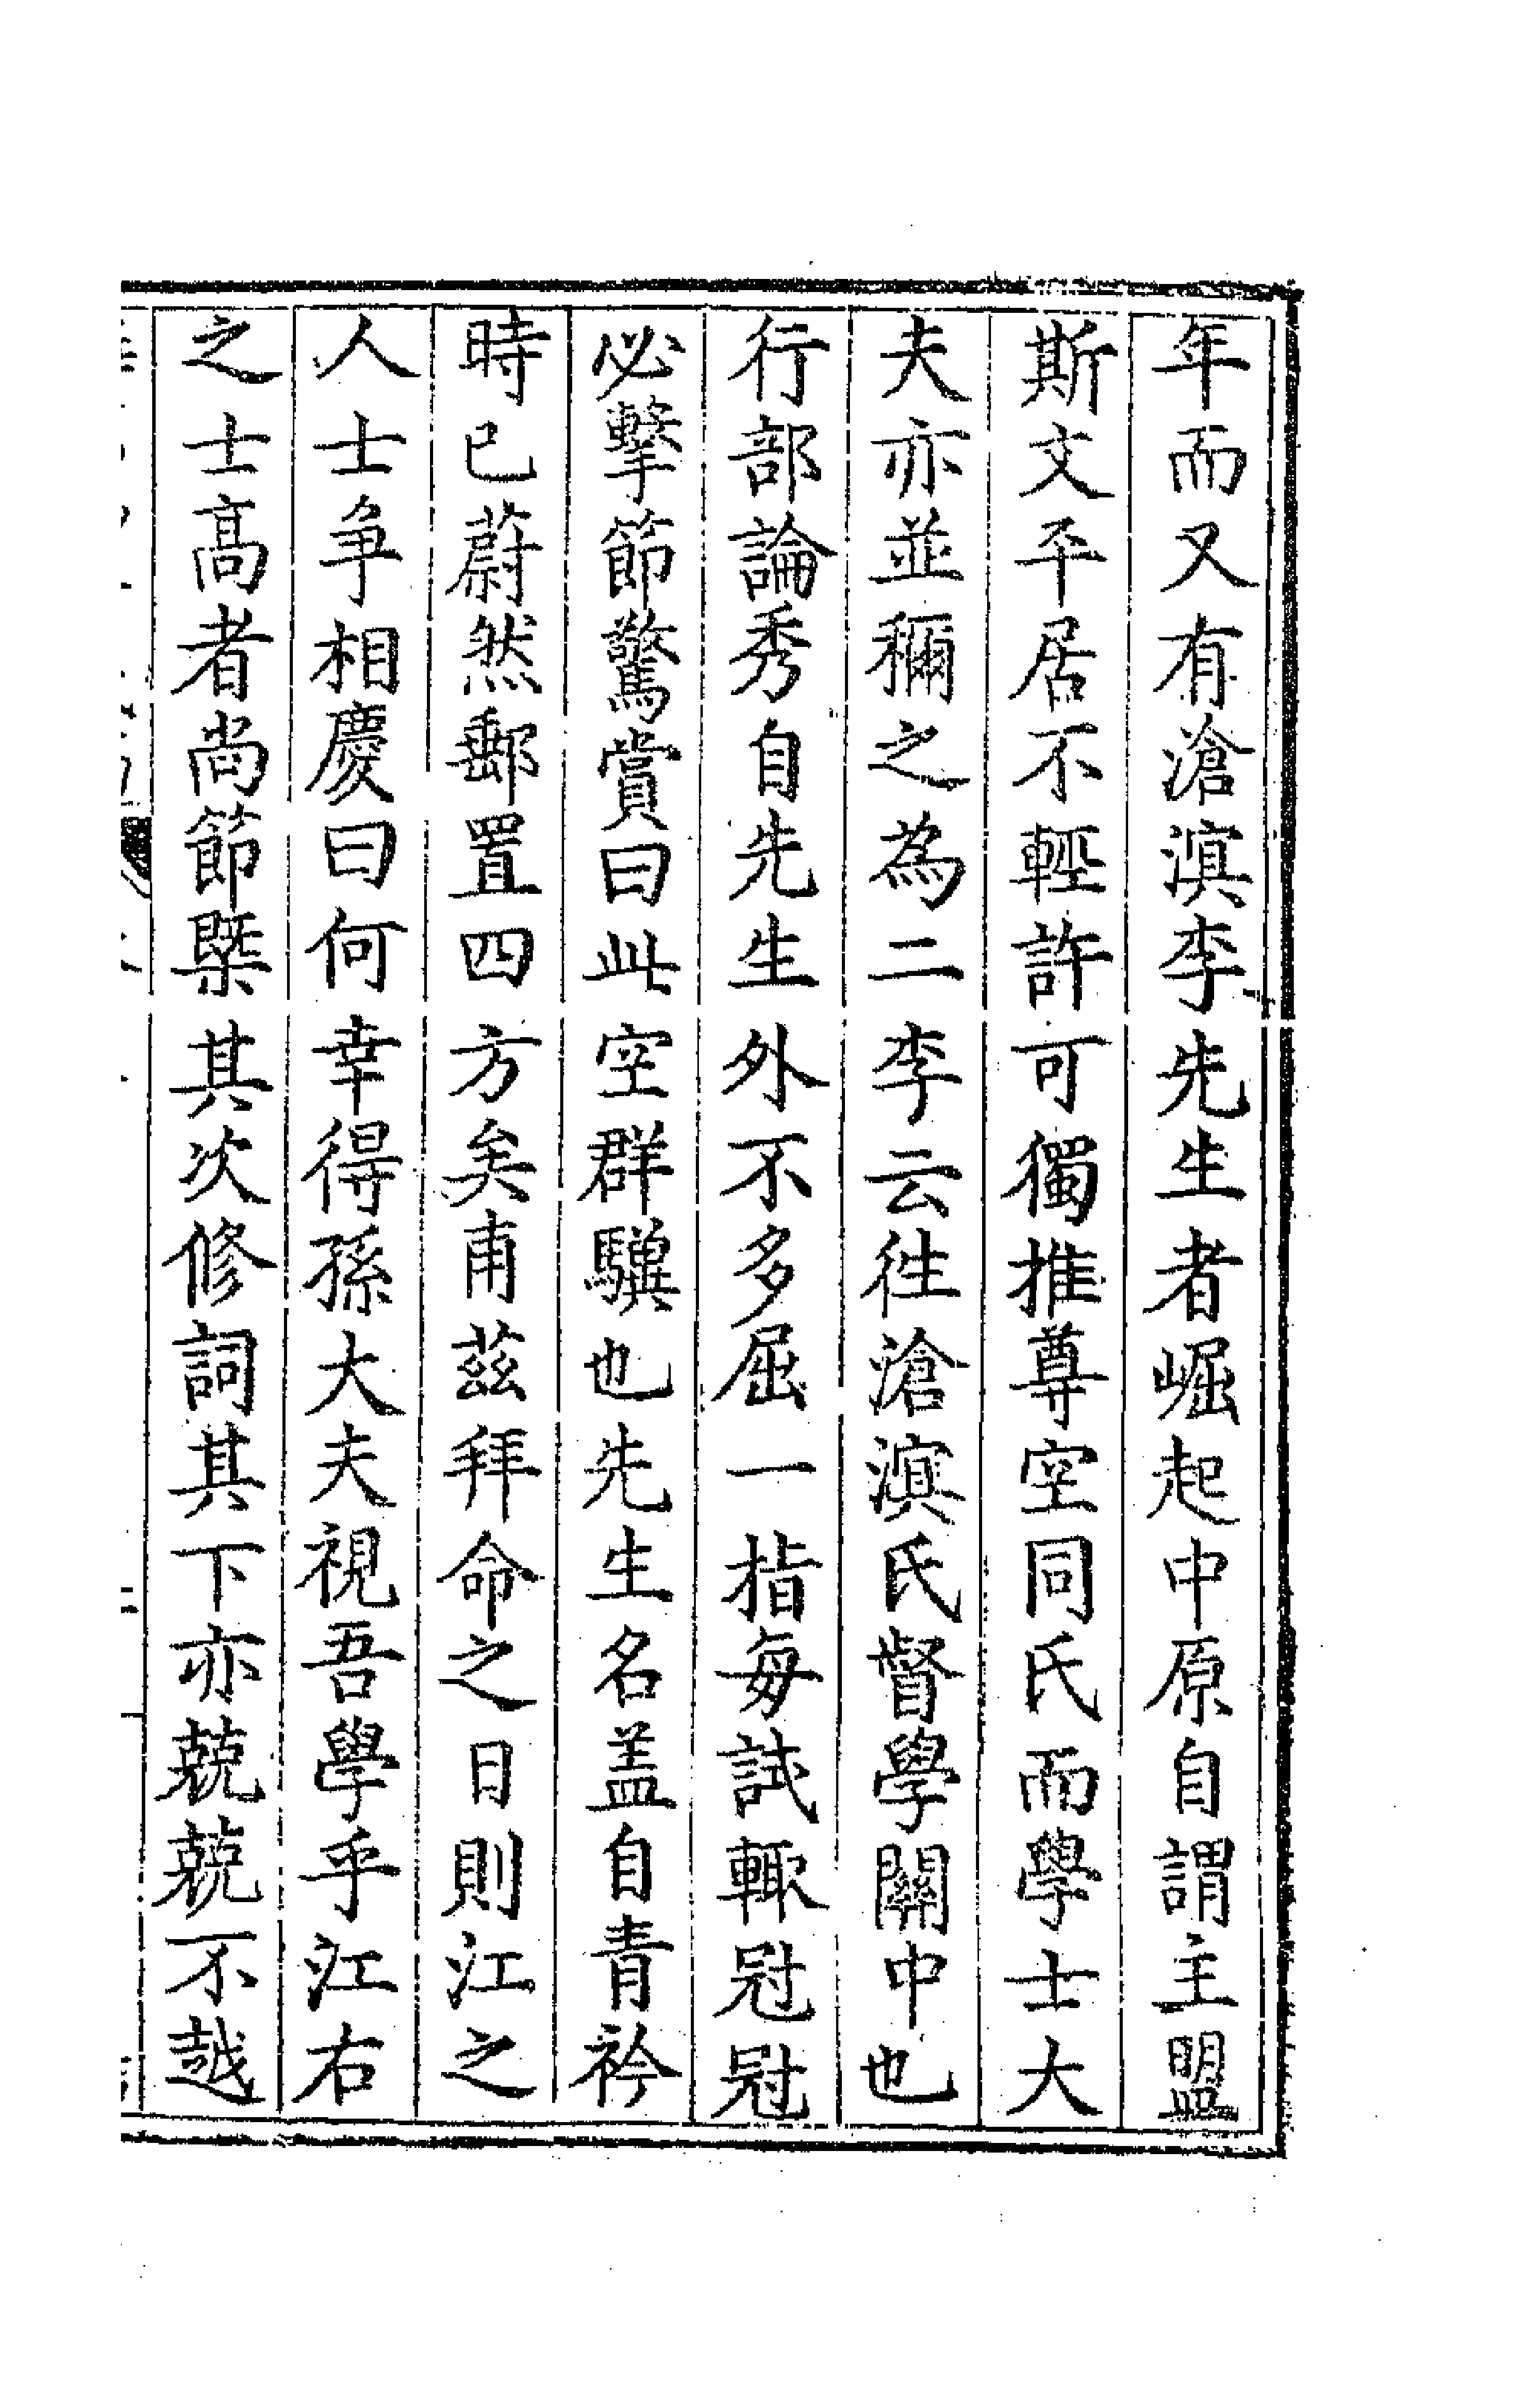 年而又有滄溟李先生者崛起中原自謂主盟
斯文平居不輕許可獨推尊空同氏而學士大
夫亦並稱之為二李云徃滄溟氏督學關中也
行部論秀自先生外不多屈一指每試輙冠冠
必擊節驚賞曰此空群驥也先生名盖自青衿
時已蔚然郵置四方矣甫茲拜命之日則江之
人士爭相慶曰何幸得孫大夫視吾學乎江右
之士高者尚節槩其次修詞其下亦兢兢不越